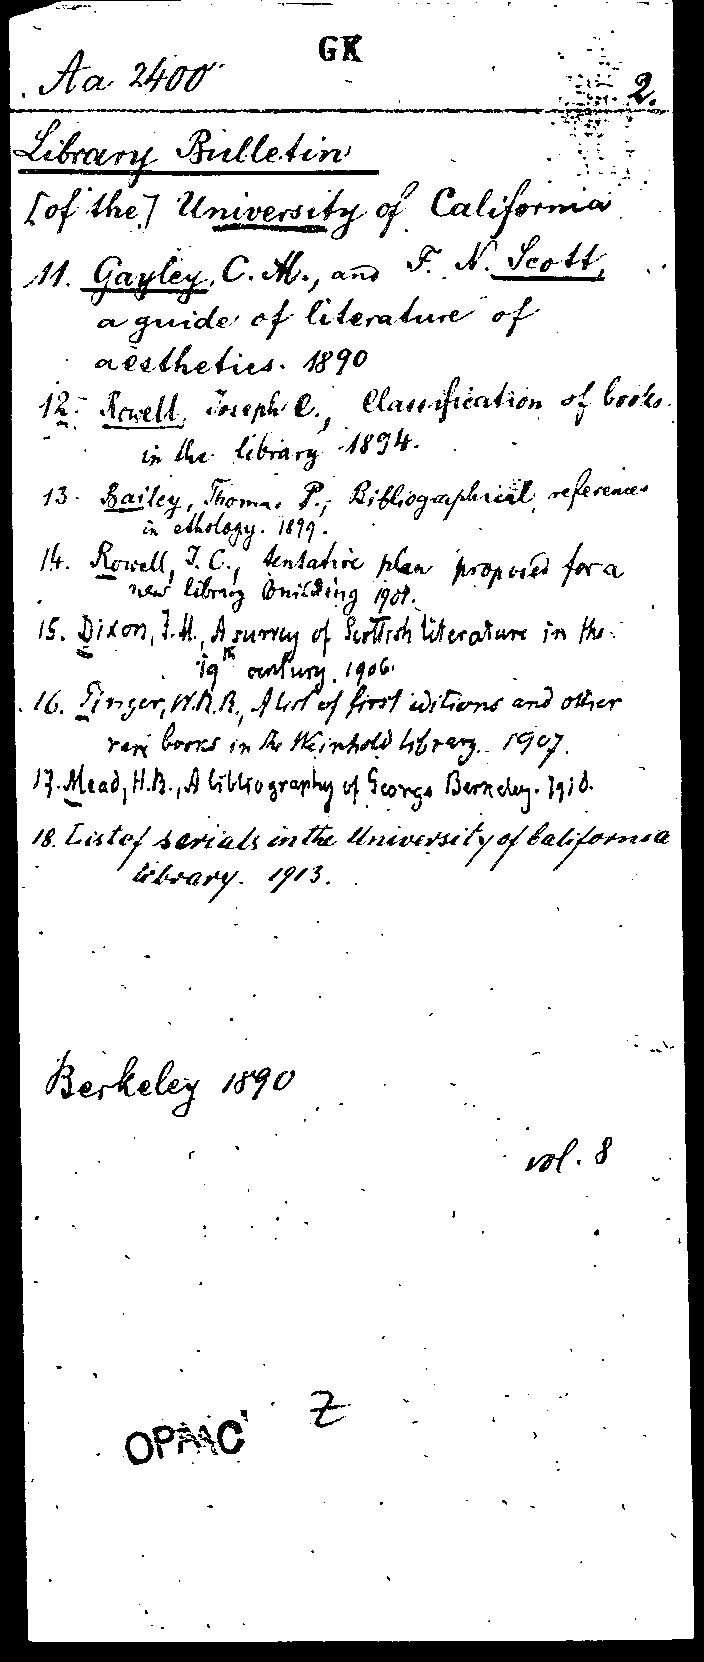 GK
Aa 2400
2.
Library Bulletin
[of the] University of California
11. Gayley, C. M., and F. N. Scott,
a guide of literature of
aesthetics. 1890
12. Rowell, Joseph C., Classification of books
in the library 1894.
13. Bailey, Thomas P., Bibliographical references
in ethology. 1899.
14. Rowell, J. C., tentative plan proposed for a
new library building 1901.
15. Dixon, J. H., A survey of Scottish literature in the
19th century. 1906.
16. Finger, W.R.R., A list of first editions and other
rare books in the Weinhold library. 1907.
17. Mead, H.R., A bibliography of George Berkeley. 1910.
18. List of serials in the University of California
library. 1913.
Berkeley 1890
vol. 8
Z
OPAC